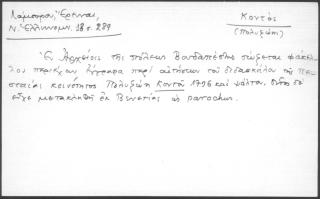 Λάμπρου, Ἔρευναι,
Ν. Ἑλληνομν. 18 σ. 289
Κοντός
(Πολυζώης)
Ἐν Ἀρχείοις τῆς πόλεως Βουδαπέστης σώζεται φάκελ-
λος περιέχων ἔγγραφα περὶ αἰτήσεων τοῦ διδασκάλου τῆς Πε-
σταίας κοινότητος Πολυζώη Κοντοῦ 1796 καὶ ψάλτου,
εἶχε μετακληθῆ ἐκ Βενετίας ὡς parochus.